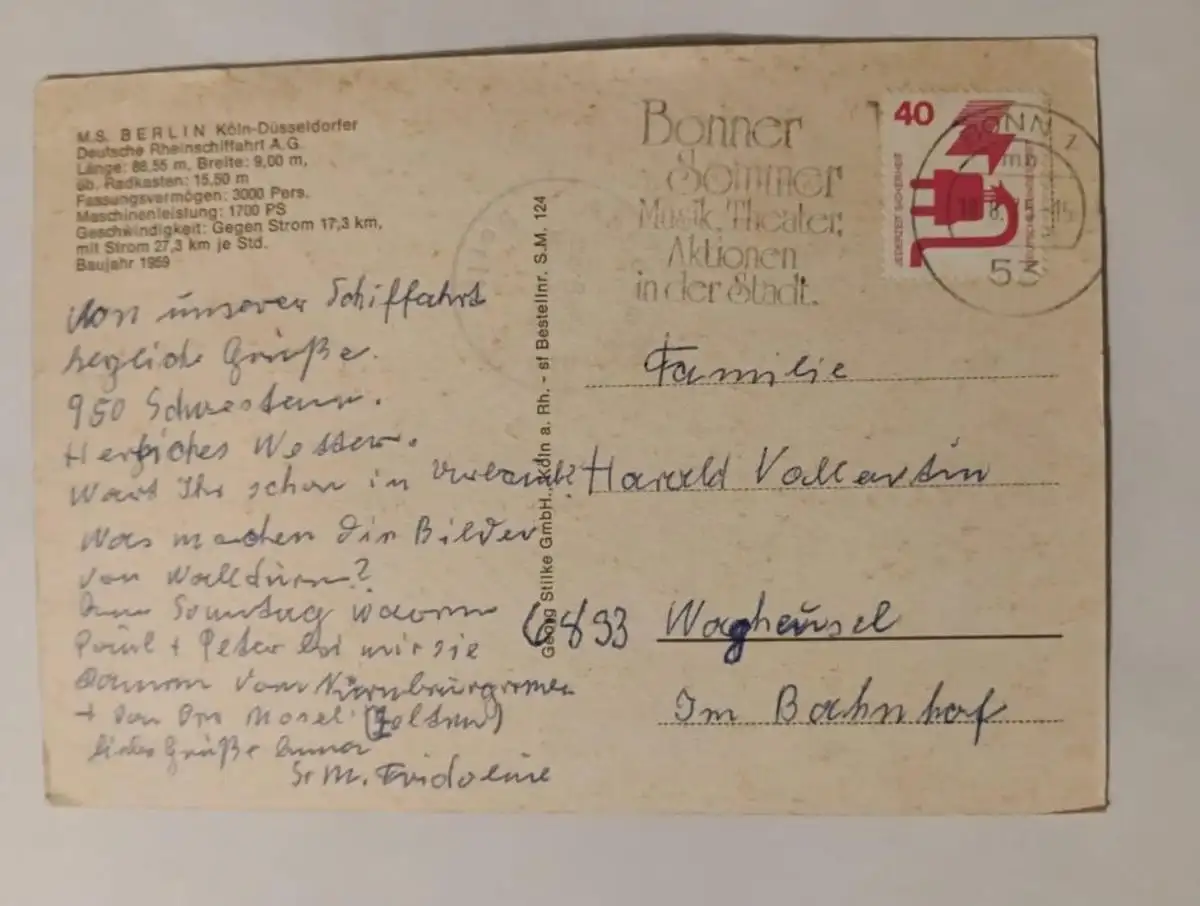 M.S. BERLIN Köln-Düsseldorfer
Deutsche Rheinschiffahrt A.G.
Länge: 88,55 m, Breite: 9,00 m,
üb. Radkasten: 15,50 m
Fassungsvermögen: 3000 Pers.
Maschinenleistung: 1700 PS
Geschwindigkeit: Gegen Strom 17,3 km,
mit Strom 27,3 km je Std.
Baujahr 1959
Von unserer Schiffahrt
herzliche Grüße.
950 Schwestern.
Herrliches Wetter.
Wart Ihr schon in Urlaub?
Was machen die Bilder
von Walldürn?
Sonntag waren
Paul + Peter bei mir sie
kamen vom Nürnburgring
+ von der Mosel (Zelten)
liebe Grüße Eurer
Sr M. Fridoline
Georg Stilke GmbH., Köln a. Rh. - sf Bestellnr. S.M. 124
Bonner
Sommer
Musik, Theater,
Aktionen
in der Stadt.
40
JEDERZEIT SICHERHEIT
BONN
mb
53
Familie
Harald Vallertin
6833 Waghäusel
Im Bahnhof